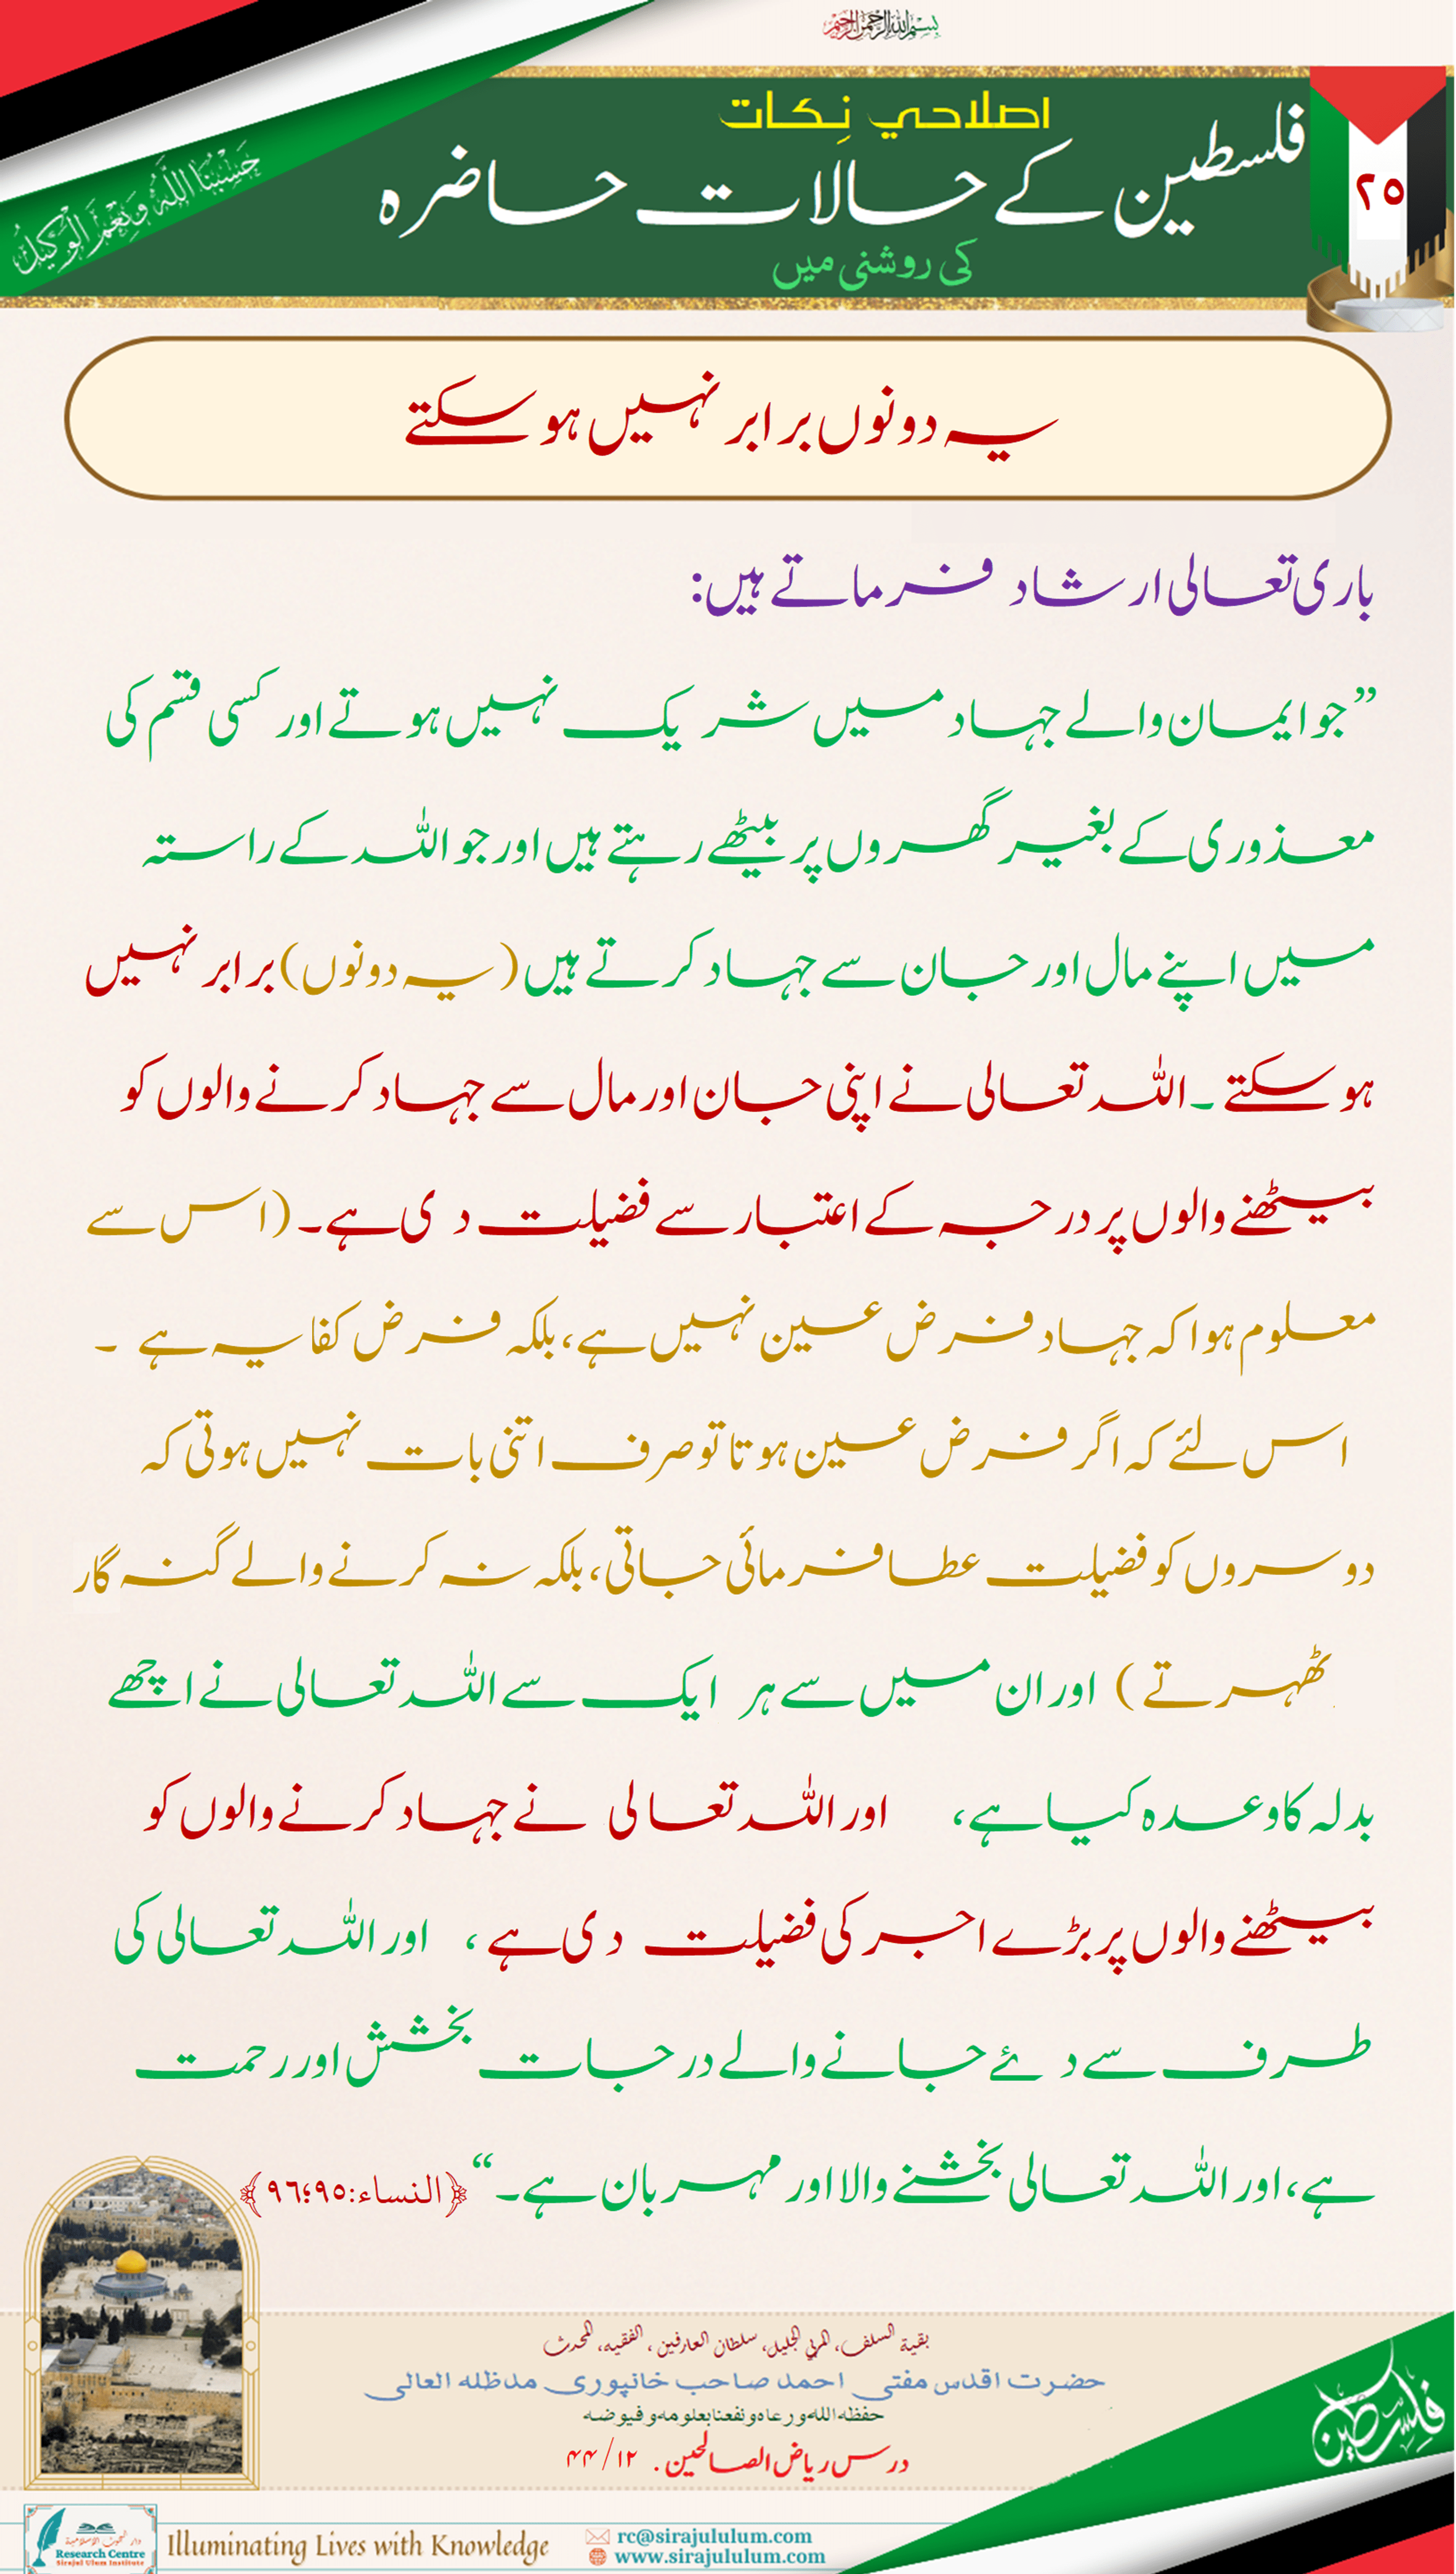 بسم الله الرحمن الرحيم
حَسْبُنَا اللَّهُ وَنِعْمَ الْوَكِيلُ
۲۵
اصلاحي نِكات
فلسطین کے حالات حاضرہ
کی روشنی میں
یہ دونوں برابر نہیں ہو سکتے
باری تعالی ارشاد فرماتے ہیں:
”جو ایمان والے جہاد میں شریک نہیں ہوتے اور کسی قسم کی
معذوری کے بغیر گھروں پر بیٹھے رہتے ہیں اور جو اللہ کے راستہ
میں اپنے مال اور جان سے جہاد کرتے ہیں (یہ دونوں) برابر نہیں
ہو سکتے ۔ اللہ تعالی نے اپنی جان اور مال سے جہاد کرنے والوں کو
بیٹھنے والوں پر درجہ کے اعتبار سے فضیلت دی ہے۔ (اس سے
معلوم ہوا کہ جہاد فرض عین نہیں ہے، بلکہ فرض کفایہ ہے ۔
اس لئے کہ اگر فرض عین ہوتا تو صرف اتنی بات نہیں ہوتی کہ
دوسروں کو فضیلت عطا فرمائی جاتی، بلکہ نہ کرنے والے گنہ گار
ٹھہرتے ) اور ان میں سے ہر ایک سے اللہ تعالی نے اچھے
بدلہ کا وعدہ کیا ہے، اور اللہ تعالی نے جہاد کرنے والوں کو
بیٹھنے والوں پر بڑے اجر کی فضیلت دی ہے ، اور اللہ تعالی کی
طرف سے دئے جانے والے درجات بخشش اور رحمت
ہے، اور اللہ تعالی بخشنے والا اور مہربان ہے۔“ ﴿النساء:۹۵؛۹۶﴾
بقية السلف، المربي الجليل، سلطان العارفين، الفقيه، المحدث
حضرت اقدس مفتی احمد صاحب خانپوری مدظلہ العالی
حفظه الله ورعاه ونفعنا بعلومه وفيوضه
درس ریاض الصالحین . ۱۲/ ۴۴
فلسطين
دار البحوث الإسلامية
Research Centre
Sirajul Ulum Institute
Illuminating Lives with Knowledge
rc@sirajululum.com
www.sirajululum.com